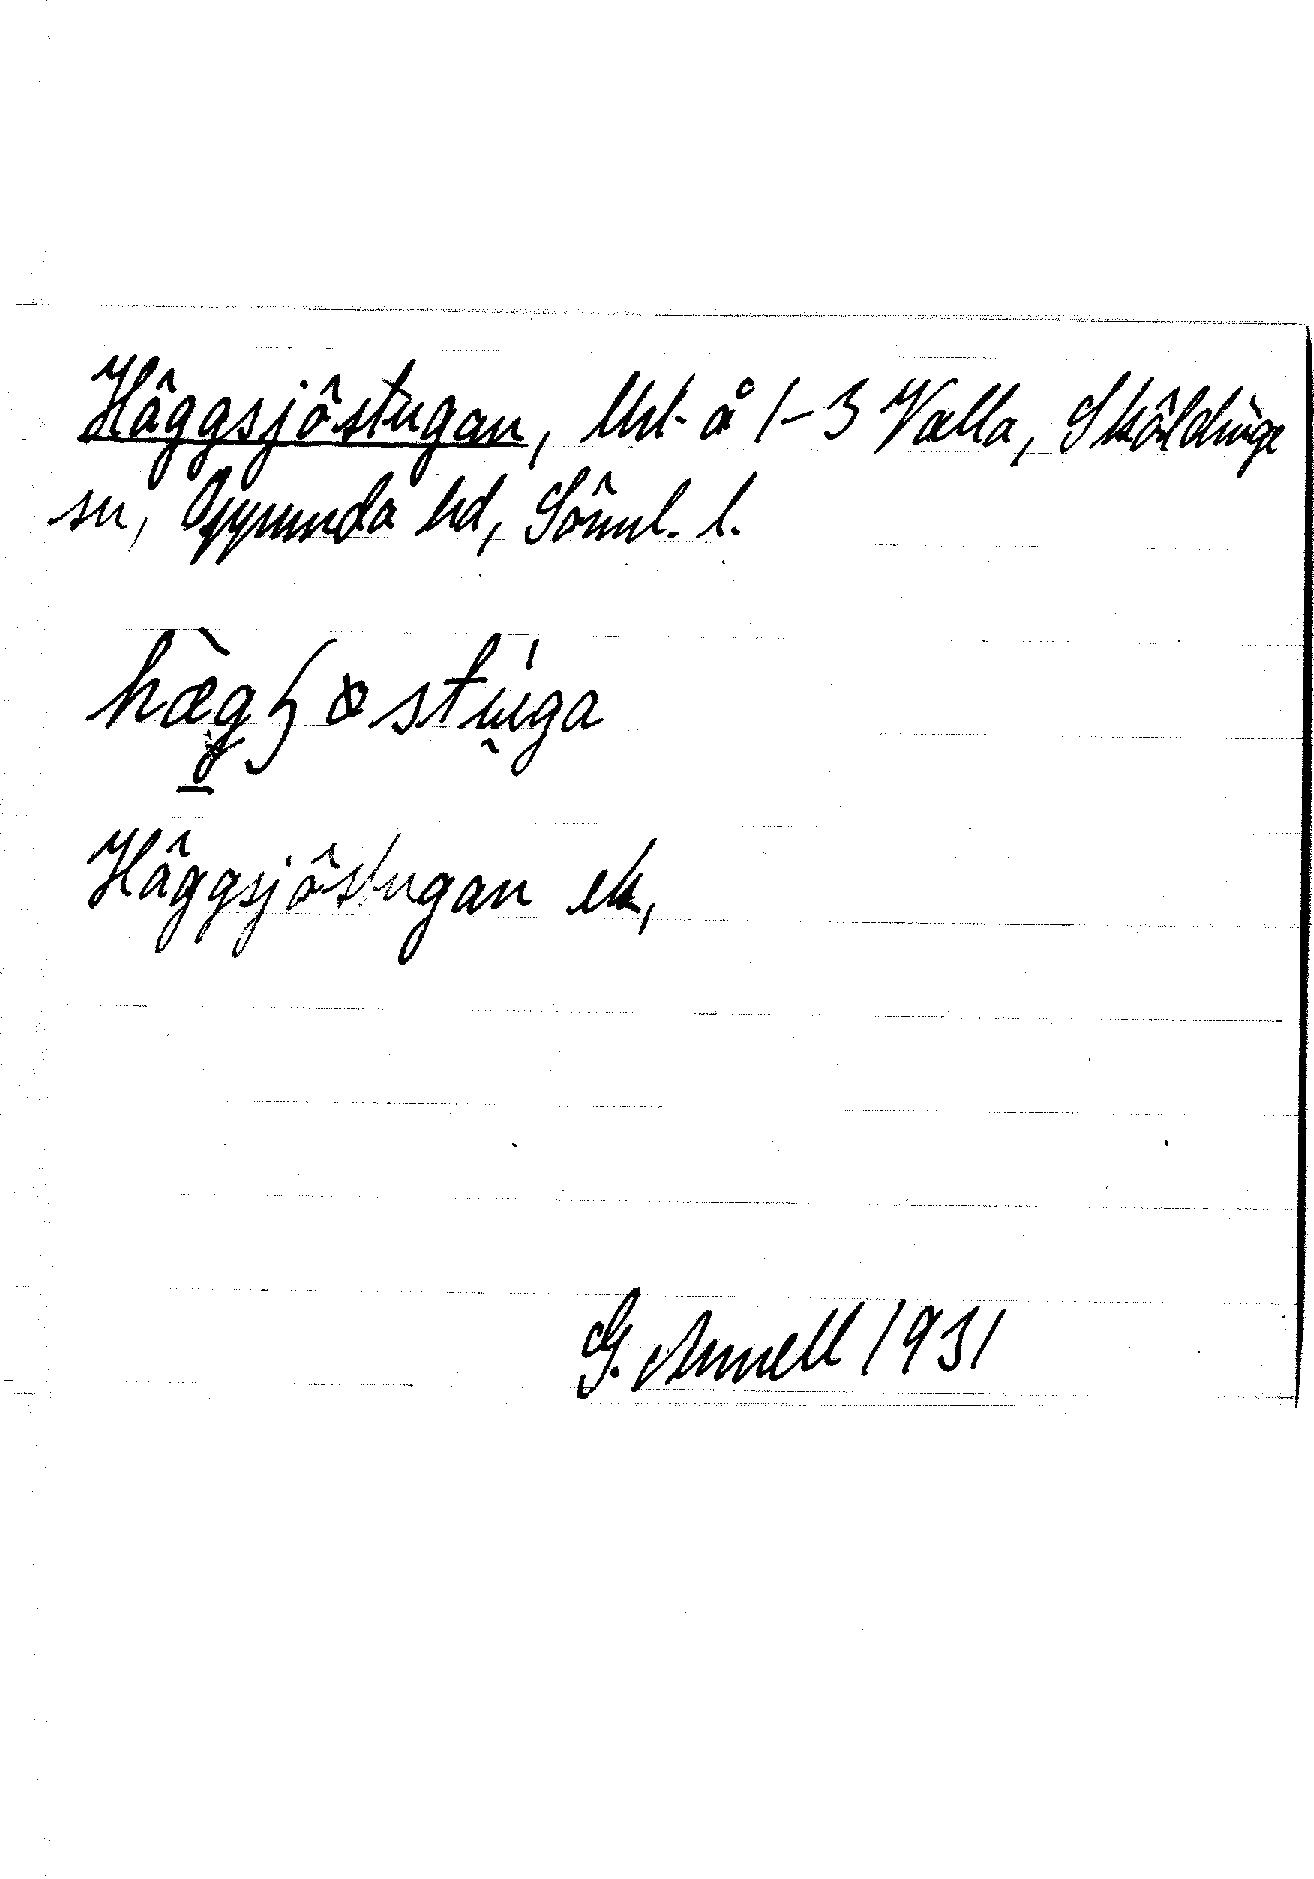 Häggsjöstugan, lht å 1-3 Valla, Sköldinge
sn, Oppunda hd, Söml. l.
hæg stuga
Häggsjöstugan ek,
G. Annell 1931